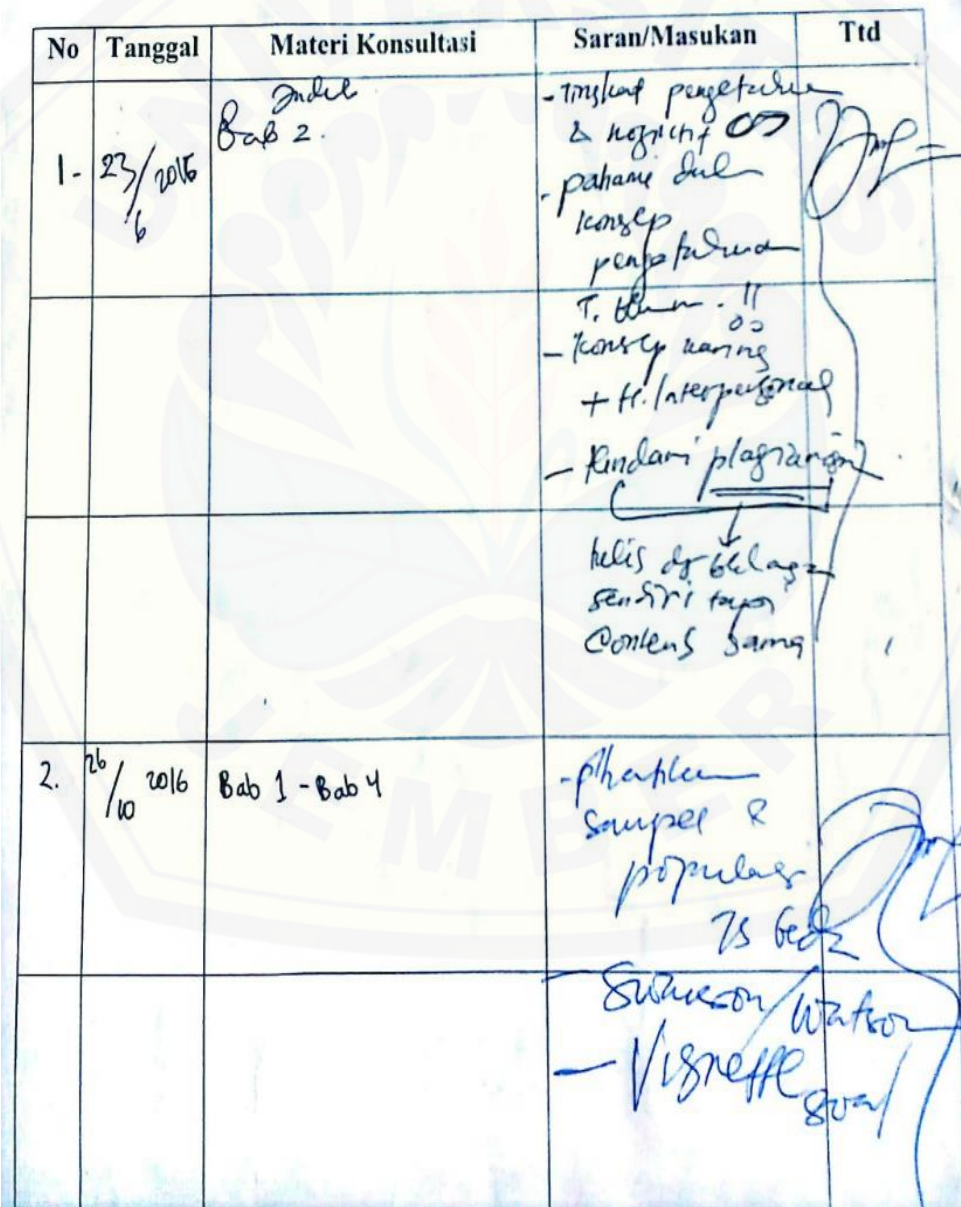 No Tanggal Materi Konsultasi Saran/Masukan Ttd
1. 23/6 2016
Judul
Bab 2.
- tingkat pengetahuan
& kognitif
- pahami dulu
konsep
pengetahuan
- konsep caring
+ H. Interpersonal
- Hindari plagiarism
tulis dg bahasa
sendiri tapi
Contens sama
2. 26/10 2016 Bab 1 - Bab 4
- 
sampel &
populasi
Swanson/Watson
- Vignette
soal
UNIVERSITAS
JEMBER